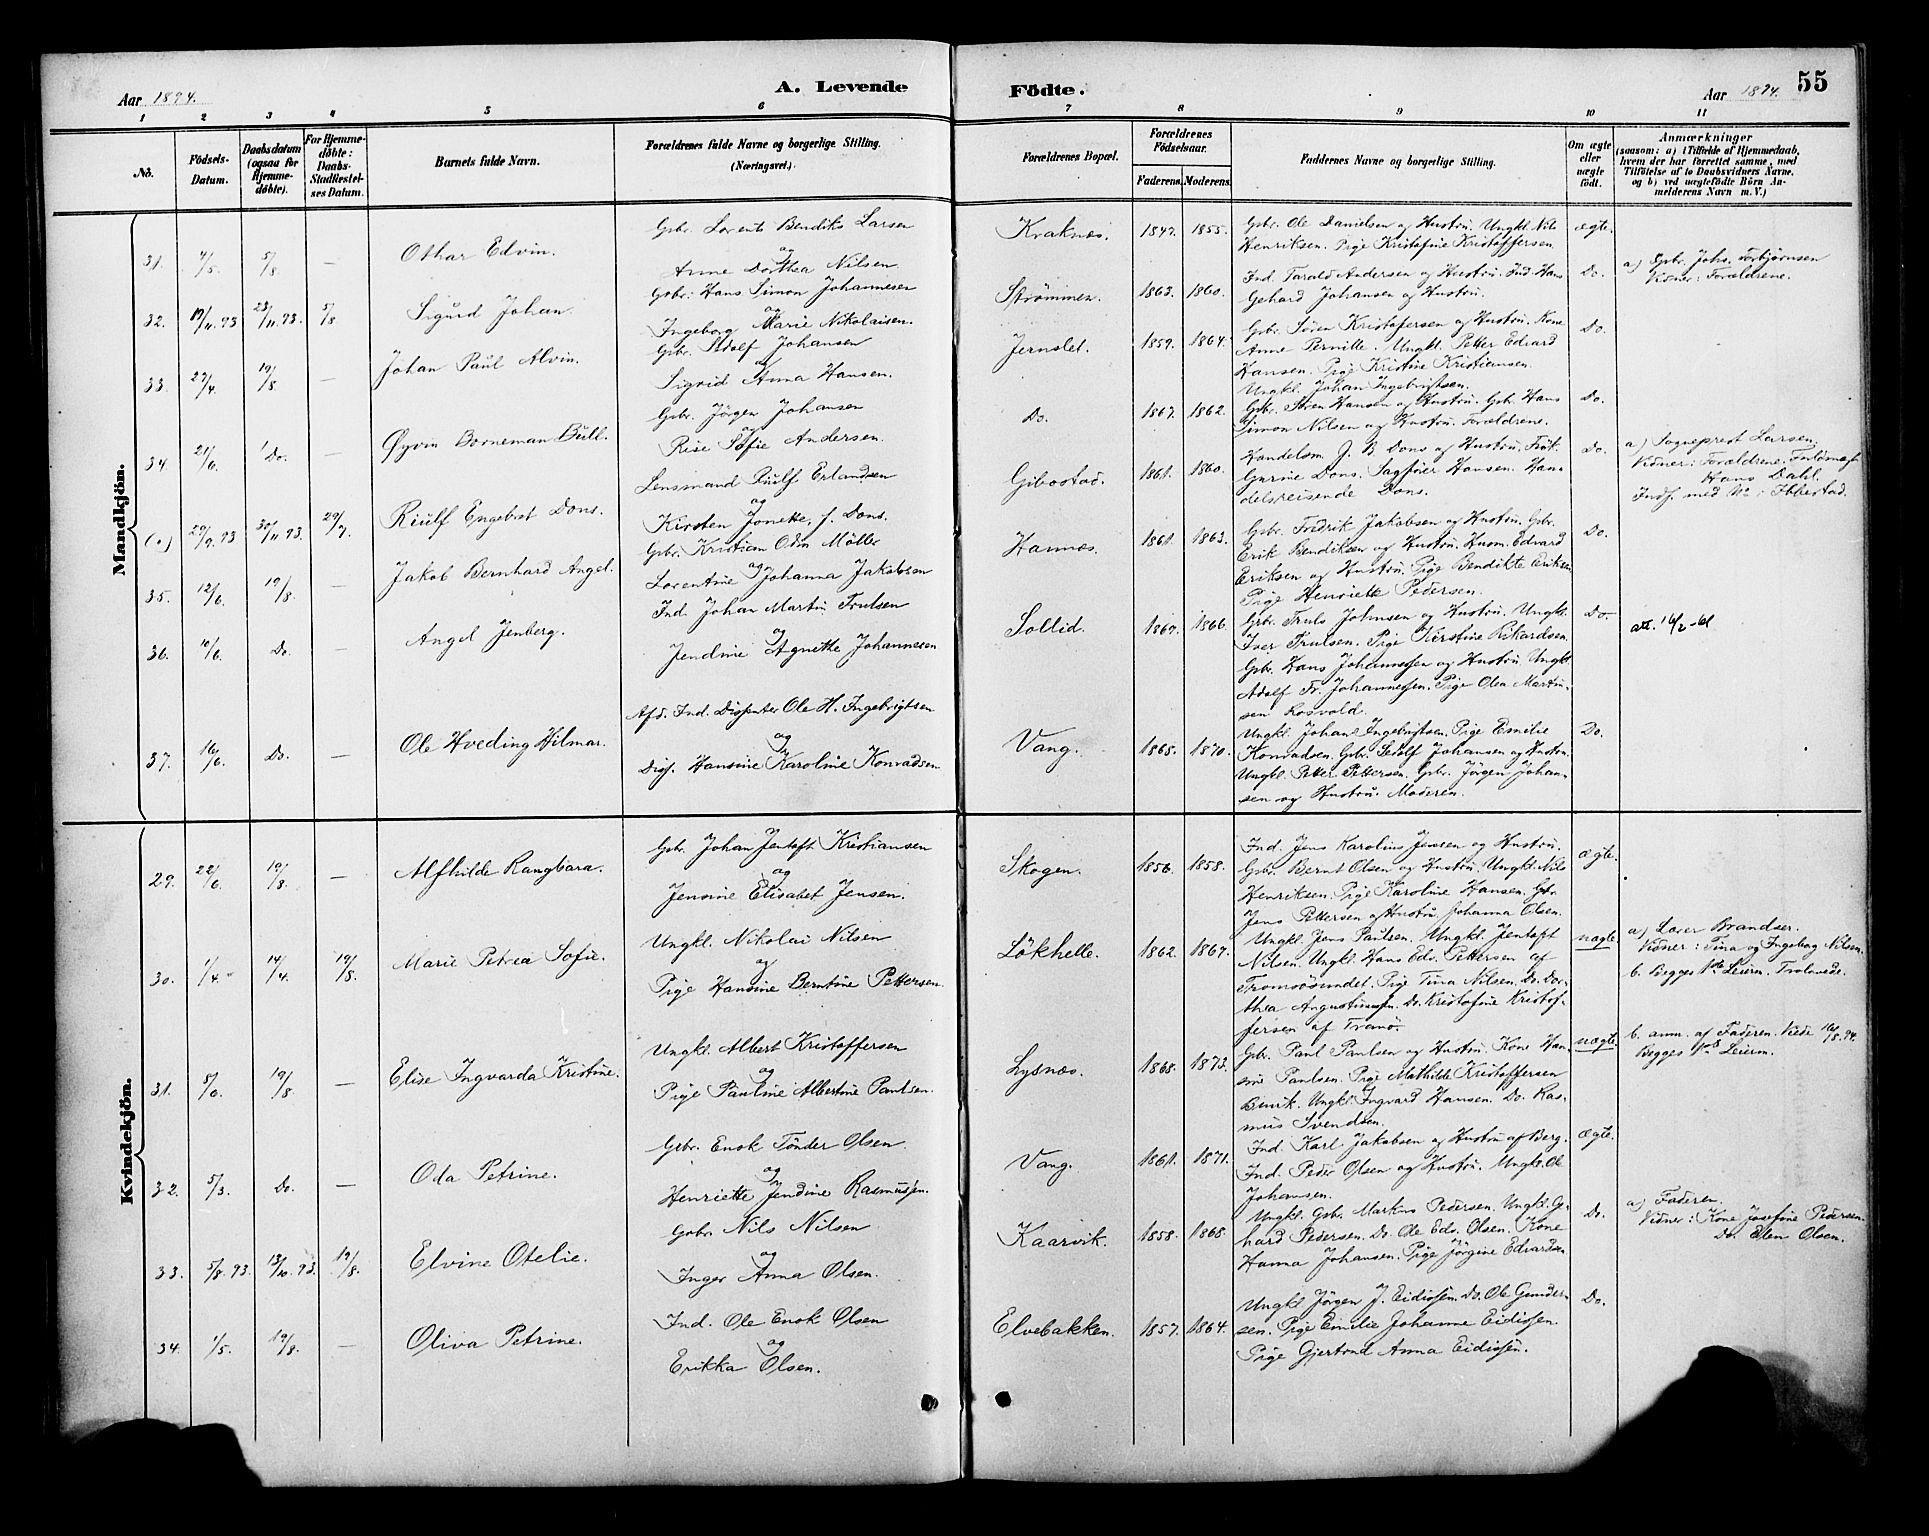 Aar 1894.
A. Levende
1 2 3 4 5 6
No.
Födsels-Datum.
Daabsdatum (ogsaa for Hjemme-döbte).
For Hjemme-döbte: Daabs-Stadfæstel-ses Datum.
Barnets fulde Navn.
Forældrenes fulde Navne og borgerlige Stilling.
(Næringsvei.)
Mandkjön.
Gbr. Lorents Bendiks Larsen
31. 4/5 5/8 — Othar Edvin. og
Anne Dorthea Nilsen.
Gbr. Hans Simon Johannesen
32. 19/11.93 23/11.93. 5/8 Sigurd Johan. og
Ingeborg Marie Nikolaisen.
Gbr. Adolf Johansen
33. 27/4 19/8 — Johan Paul Alvin. og
Sigrid Anna Hansen.
Gbr. Jörgen Johansen
34 21/6 Do. — Øyvin Borneman Bull. og
Rise Sofie Andersen.
Lensmand Riulf Erlandsen
(0) 29/9.93 30/11.93. 29/7 Riulf Engebret Dons. og
Kirsten Jonette, f. Dons.
Gbr. Kristian Odin Möller
35. 12/6 19/8 — Jakob Bernhard Angel. og
Lorentine Johanna Jakobsen
Ind. Johan Martin Trulsen
36. 10/6 Do. — Angel Jenberg. og
Jendine Agnethe Johannesen
Afd. Ind. Dispenter Ole H. Ingebrigtsen
37. 16/6 Do. — Ole Hveding Hilmar. og
Diss. Hansine Karoline Konradsen.
Kvindekjön.
Gbr. Johan Jentoft Kristiansen
29. 22/6 19/8 — Alfhilde Rangbara. og
Jensine Elisabet Jensen.
Ungkl. Nikolai Nilsen
30. 1/4 14/4. 19/8. Marie Petrea Sofie. og
Pige Hansine Berntine Pettersen.
Ungkl. Albert Kristoffersen
31. 5/6. 19/8 — Elise Ingvarda Kristine. og
Pige Pauline Albertine Paulsen.
Gbr. Enok Tönder Olsen.
32. 5/3. Do. — Oda Petrine. og
Henriette Jendine Rasmussen.
Gbr. Nils Nilsen
33. 5/8.93. 13/10.93. 19/8. Elvine Otelie. og
Inger Anna Olsen.
Ind. Ole Enok Olsen
34. 1/5. 19/8. — Oliva Petrine. og
Erikka Olsen.
Födte.
Aar 1894.
55
7 8 9 10 11
Forældrenes Bopæl.
Forældrenes Födselsaar.
Faderens. Moderens.
Faddernes Navne og borgerlige Stilling.
Om ægte eller uægte födt.
Anmærkninger
(saasom: a) i Tilfælde af Hjemmedaab,
hvem der har forrettet samme, med
Tilföielse af to Daabsvidners Navne,
og b) ved uægtefödte Börn An-
melderens Navn m. V.)
Kraknes. 1847. 1855. Gbr. Ole Danielsen og Hustru. Ungkl. Nils ægte.
Henriksen. Pige Kristofine Kristoffersen.
Strömmen. 1863. 1860. Ind. Tarald Andersen og Hustru. Ind. Hans Do. a) Gbr. Johs. Torbjörnsen
Gehard Johansen og Hustru. Vidner: Forældrene.
Jernslet. 1859. 1864. Gbr. Sören Kristofersen og Hustru. Kone Do.
Anne Pernille. Ungkl. Petter Edvard
Hansen. Pige Kristine Kristiansen.
Ungkl. Johan Ingebrigtsen.
Do. 1867. 1862. Gbr. Sören Hansen og Hustru. Gbr. Hans Do.
Simon Nilsen og Hustru. Forældrene.
Gibostad. 1861. 1860. Handelsm. J. B. Dons og Hustru. Frök. Do. a) Sogneprest Larsen.
Gurine Dons. Sagförer Hansen. Han-
delsreisende Dons.
Vidner: Forældrene,
Hans Dahl.
Indf. med No i Ibbestad.
Hannes. 1861. 1863. Gbr. Fredrik Jakobsen og Hustru. Gbr. Do.
Erik Bendiksen og Hustru. Husm. Edvard
Eriksen og Hustru. Pige Bendikte Eriksen
Pige Henriette Pedersen.
Sollid. 1867. 1866. Gbr. Truls Johnsen og Hustru. Ungkl. Do. att. 16/2-61
Iver Trulsen. Pige Kirstine Rikardsen.
Gbr. Hans Johannessen og Hustru. Ungkl.
Adolf Fr. Johannessen. Pige Olea Martin-
sen Rosvold.
Vang. 1865. 1870. Ungkl. Johan Ingebrigtsen. Pige Emilie Do.
Konradsen. Gbr. Adolf Johansen og Hustru.
Ungkl. Petter Pettersen. Gbr. Jörgen Johan-
sen og Hustru. Moderen.
Skogen. 1856. 1858. Ind. Jens Karolius Jensen og Hustru. ægte.
Gbr. Bernt Olsen og Hustru. Ungkl. Nils
Henriksen. Pige Karoline Hansen. Gbr.
Jens Pettersen og Hustru. Johanna Olsen.
Lökhelle. 1862. 1867. Ungkl. Jens Paulsen. Ungkl. Jentoft uægte. a) Lærer Brandser.
Nilsen. Ungkl. Hans Edv. Pettersen af Vidner: Tina og Ingeborg Nilsen.
Tromsösundet. Pige Tina Nilsen. Do. Dor- b. Begges 1ste Leierm. Trolovede.
thea Angustinussen. Do. Kristofine Kristof-
fersen af Tranö.
Lysnes. 1868. 1873. Gbr. Paul Paulsen og Hustru. Kone Han- uægte b. anm. af Faderen. Viede 16/8.94.
sine Paulsen. Pige Mathilde Kristoffersen Begges 1ste Leierm.
Benrik. Ungkl. Ingvard Hansen. Do. Ras-
mus Svendsen.
Vang. 1861. 1871. Ind. Karl Jakobsen og Hustru af Berg. ægte.
Ind. Peder Olsen og Hustru. Ungkl. Ole
Johansen.
Kaarvik. 1858. 1868. Ungkl. Gbr. Markus Pedersen. Ungkl. Ge- Do. a) Faderen.
hard Pedersen. Do. Ole Edv. Olsen. Kone Vidner: Kone Josefine Pedersen.
Hanna Johansen. Pige Jörgine Edvardsen Do. Elen Olsen.
Elvebakken. 1857. 1864. Ungkl. Jörgen J. Eidissen. Do. Ole Gunder- Do.
sen. Pige Emilie Johanne Eidissen.
Pige Gjertrud Anna Eidissen.